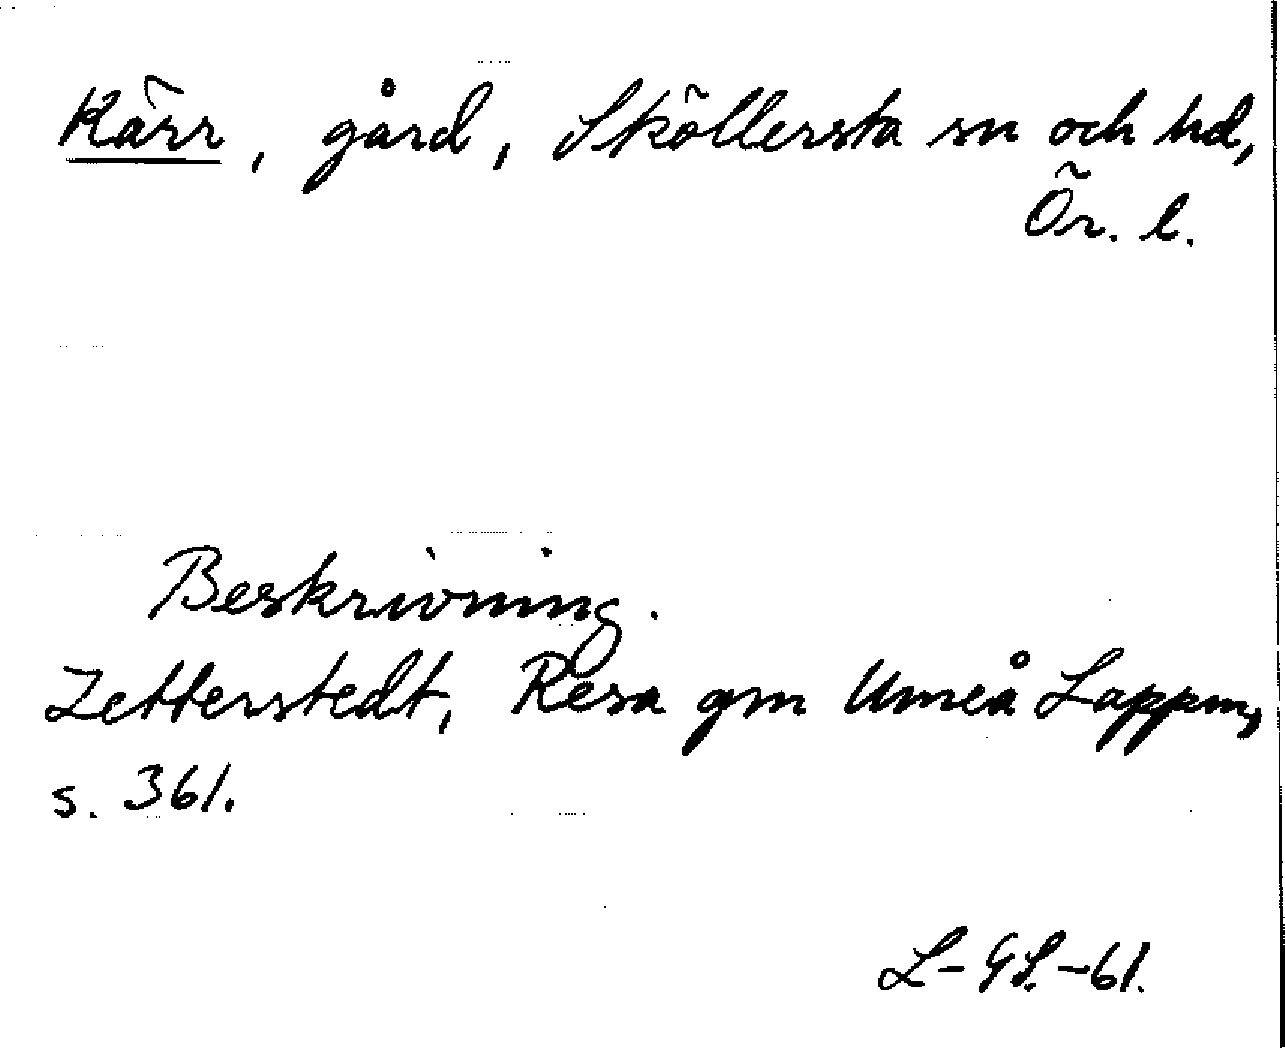 Kärr, gård, Sköllersta sn och hd,
Ör. l.
Beskrivning.
Zetterstedt, Resa gm Umeå Lappm,
s. 361.
L-GS.-61.